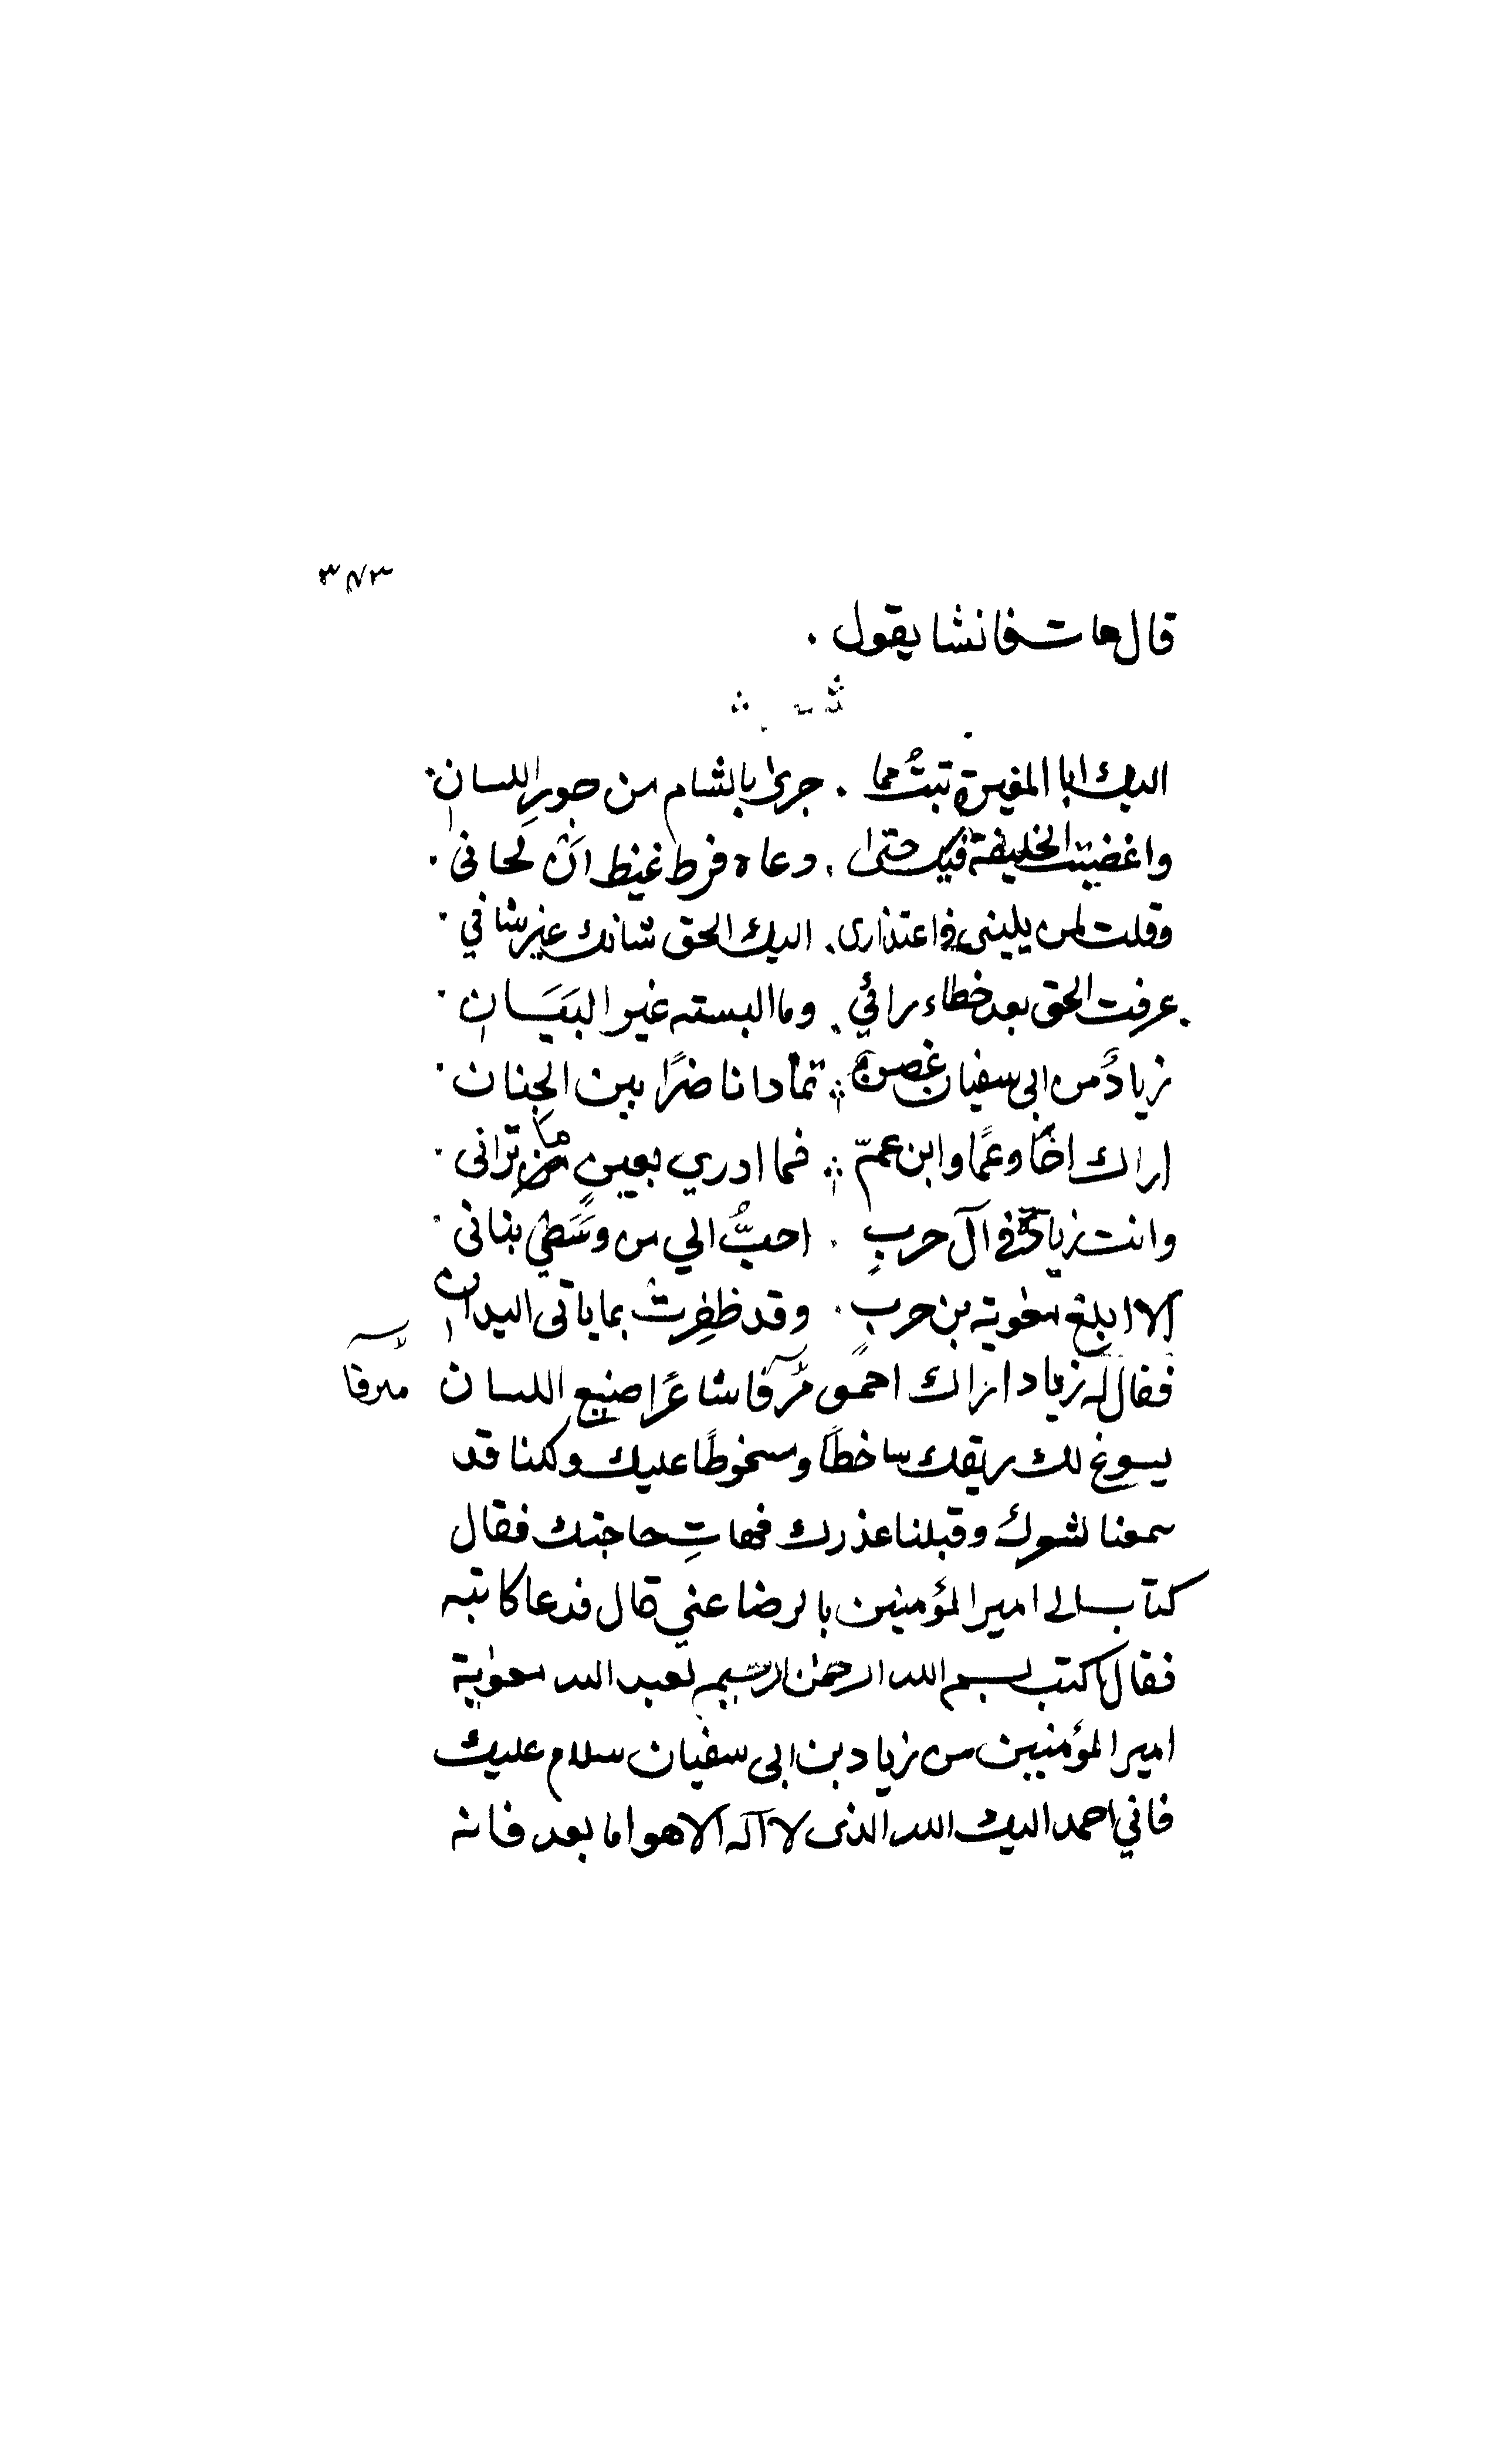 ٣٨٣
قال هات فانشا يقول ٠
اليك ابا المغيرة تبتُ مما ٠ جرى بالشام من جورِ اللسانِ ٠
واغضبتُ الخليفة فيك حتى ٠ دعاه فرط غيظ ان لحانى ٠
وقلت لمن يلينى في اعتذارى ٠ اليك الحق شانك غير شاني ٠
عرفت الحق بعد خطاء رائي ٠ وما البسته غير البَيَانِ ٠
زيادٌ من ابى سفيان غصن تهادا ناضرًا بين الجِنان ٠
اراك اخًا وعمًا وابن عمّ فما ادري بعينٍ ما ترانى ٠
وانت زيادة في آل حربٍ ٠ احبُّ الي من وسَطي بنانى ٠
الا ابلغ معوية بن حربٍ ٠ وقد ظفِرتْ بما ياتى اليدانِ
فقال له زياد اراك احمق مُرّقا شاعرًا صنيع اللسان
يسوغ لك ريقك ساخطًا ومسخوطًا عليك ولكنا قد
سمعنا شعرك وقبلنا عذرك فهاتِ حاجتك فقال
كتاب الى امير المؤمنين بالرضا عني قال فدعا كاتبه
فقال اكتب بسم الله الرحمن الرحيم لعبد الله معوية
امير المؤمنين من زياد بن ابى سفيان سلام عليك
فاني احمد اليك الله الذى لا آله الا هو اما بعد فانه